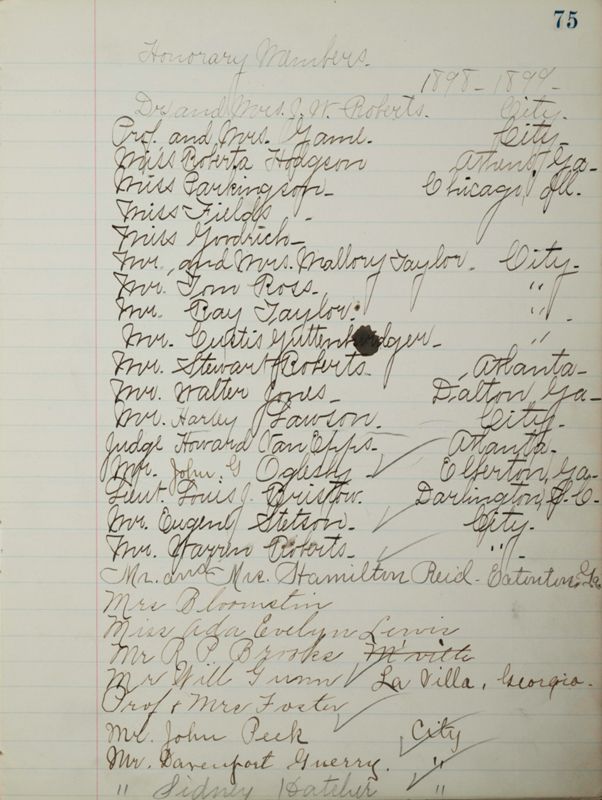 75
Honorary Members.
1898-1899-
Dr. and Mrs. J. W. Roberts. City.
Prof. and Mrs. Game. City.
Miss Roberta Hodgson Athens, Ga-
Miss Parkingson- Chicago, Ill.
Miss Fields -
Miss Goodrich-
Mr. and Mrs. Mallory Taylor. City-
Mr. Tom Ross. "
Mr. Ray Taylor. " -
Mr. Curtis - "
Mr. Stewart Roberts. Atlanta-
Mr. Walter Jones- Dalton, Ga-
Mr. Harley Lawson. City-
Judge Howard Van Epps- Atlanta-
Mr. John. G Oglesby - Elberton, Ga-
Lieut. Louis J. Bristow. Darlington, S.C-
Mr. Eugene Stetson- City-
Mr. Warren Roberts- " -
Mr. and Mrs. Hamilton Reid- Eatonton, Ga
Mrs Bloomstin
Miss Ada Evelyn Lewis
Mr R P Brooks M'ville
Mr Will Gunn La Villa, Georgia-
Prof & Mrs Foster
Mr. John Peek City
Mr. Davenport Guerry. "
" Sidney Hatcher "